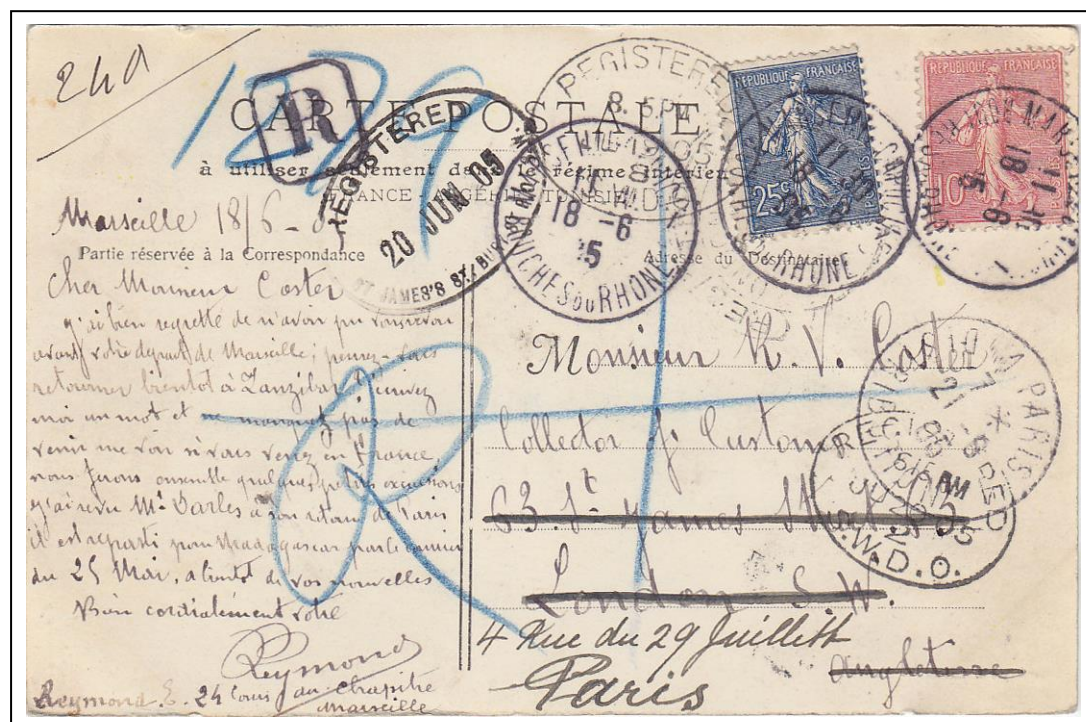 24a
1229
R
CARTE POSTALE
à utiliser seulement dans le régime intérieur
FRANCE - ALGÉRIE - TUNISIE
REGISTERED
20 JUN 05
ST JAMES'S ST.
REGISTERED
MARSEILLE
18 -6
05
BOUCHES DU RHONE
REPUBLIQUE FRANÇAISE
25c
REPUBLIQUE FRANÇAISE
10c
Marseille 18/6 -
Partie réservée à la Correspondance
Adresse du Destinataire
Cher Monsieur Coster
j'ai bien regretté de n'avoir pu vous revoir
avant votre départ de Marseille; pensez-vous
retourner bientôt à Zanzibar? Ecrivez
moi un mot et ne manquez pas de
venir me voir si vous venez en France,
nous ferons ensemble quelques petites excursions
j'ai revu Mr Darles à son retour de Paris
il est reparti pour Madagascar par le courrier
du 25 Mai, a bientôt de vos nouvelles
Bien cordialement votre
Reymond
Reymond. E. 24 Cours du Chapitre
Marseille
Monsieur K. V. Coster
Collector of Customs
63 St James Street
London S.W.
Angleterre
4 Rue du 29 Juillett
Paris
PARIS
REGISTERED
JUN 05
W.D.O.
R